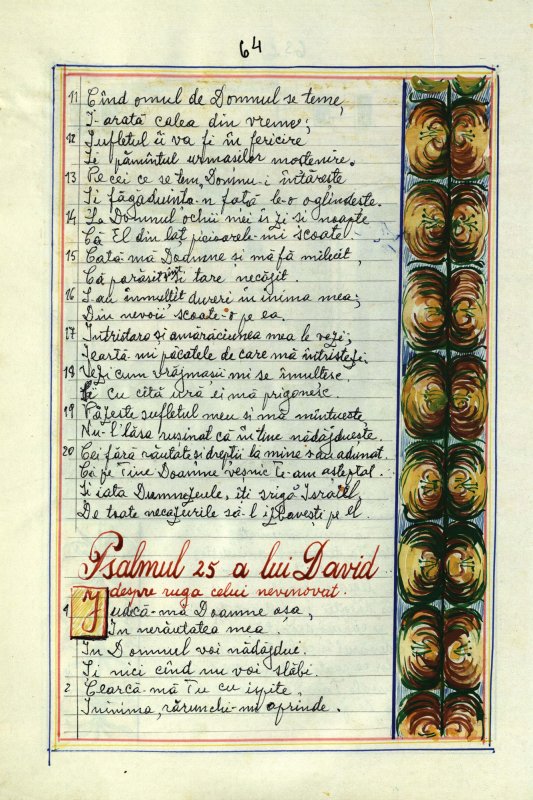 64
11 Cînd omul de Domnul se teme,
I-arată calea din vreme;
12 Sufletul îi va fi în fericire
Și pămîntul urmașilor moștenire.
13 Pe cei ce se tem, Domnu-i întărește
Și făgăduința-n față le-o oglindește.
14 La Domnul ochii mei îs zi și noapte
Că El din laț picioarele-mi scoate.
15 Cată-mă Doamne și mă fă miluit,
Că părăsit sînt și tare necăjit.
16 S-au înmulțit dureri în inima mea;
Din nevoi scoate-o pe ea.
17 Întristarea și amărăciunea mea le vezi;
Iartă-mi păcatele de care mă întristezi.
18 Vezi cum vrăjmașii mi se înmulțesc,
Și cu cîtă ură ei mă prigonesc.
19 Păzește sufletul meu și mă mîntuește
Nu-l lăsa rușinat că în tine nădăjduește.
20 Cei fără răutate și drepții la mine s-au adunat
Că pe Tine Doamne veșnic Te-am așteptat.
Și iată Dumnezeule, îți strigă Israel,
De toate necazurile să-l izbavești pe el.
Psalmul 25 a lui David
despre ruga celui nevinovat.
1 Judecă-mă Doamne așa,
În nerăutatea mea.
În Domnul voi nădăjdui.
Și nici cînd nu voi slăbi.
2 Cearcă-mă Tu cu ispite,
Inima, rărunchi-mi aprinde.